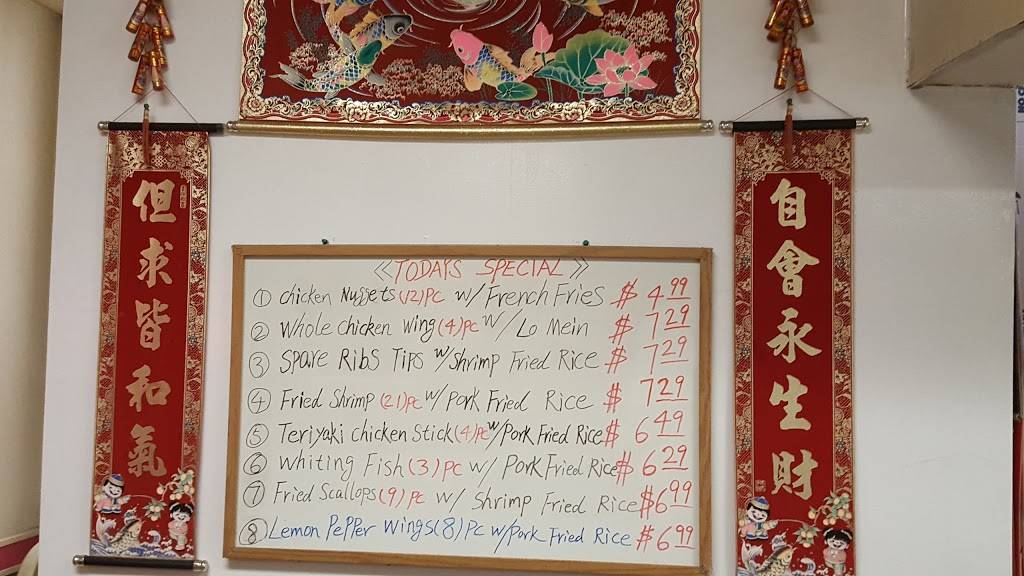 但求皆和氣
自會永生財
《TODAYS SPECIAL》
① chicken Nuggets (12) PC w/ French Fries $ 4.99
② Whole chicken wing (4) PC w/ Lo Mein $ 7.29
③ SPare RibS TiPS w/ Shrimp Fried Rice $ 7.29
④ Fried Shrimp (21) PC w/ Pork Fried Rice $ 7.29
⑤ Teriyaki chicken Stick (4) PC w/ Pork Fried Rice $ 6.49
⑥ whiting Fish (3) PC w/ Pork Fried Rice $ 6.29
⑦ Fried Scallops (9) PC w/ Shrimp Fried Rice $ 6.99
⑧ Lemon PePPer wings (8) PC w/ Pork Fried Rice $ 6.99